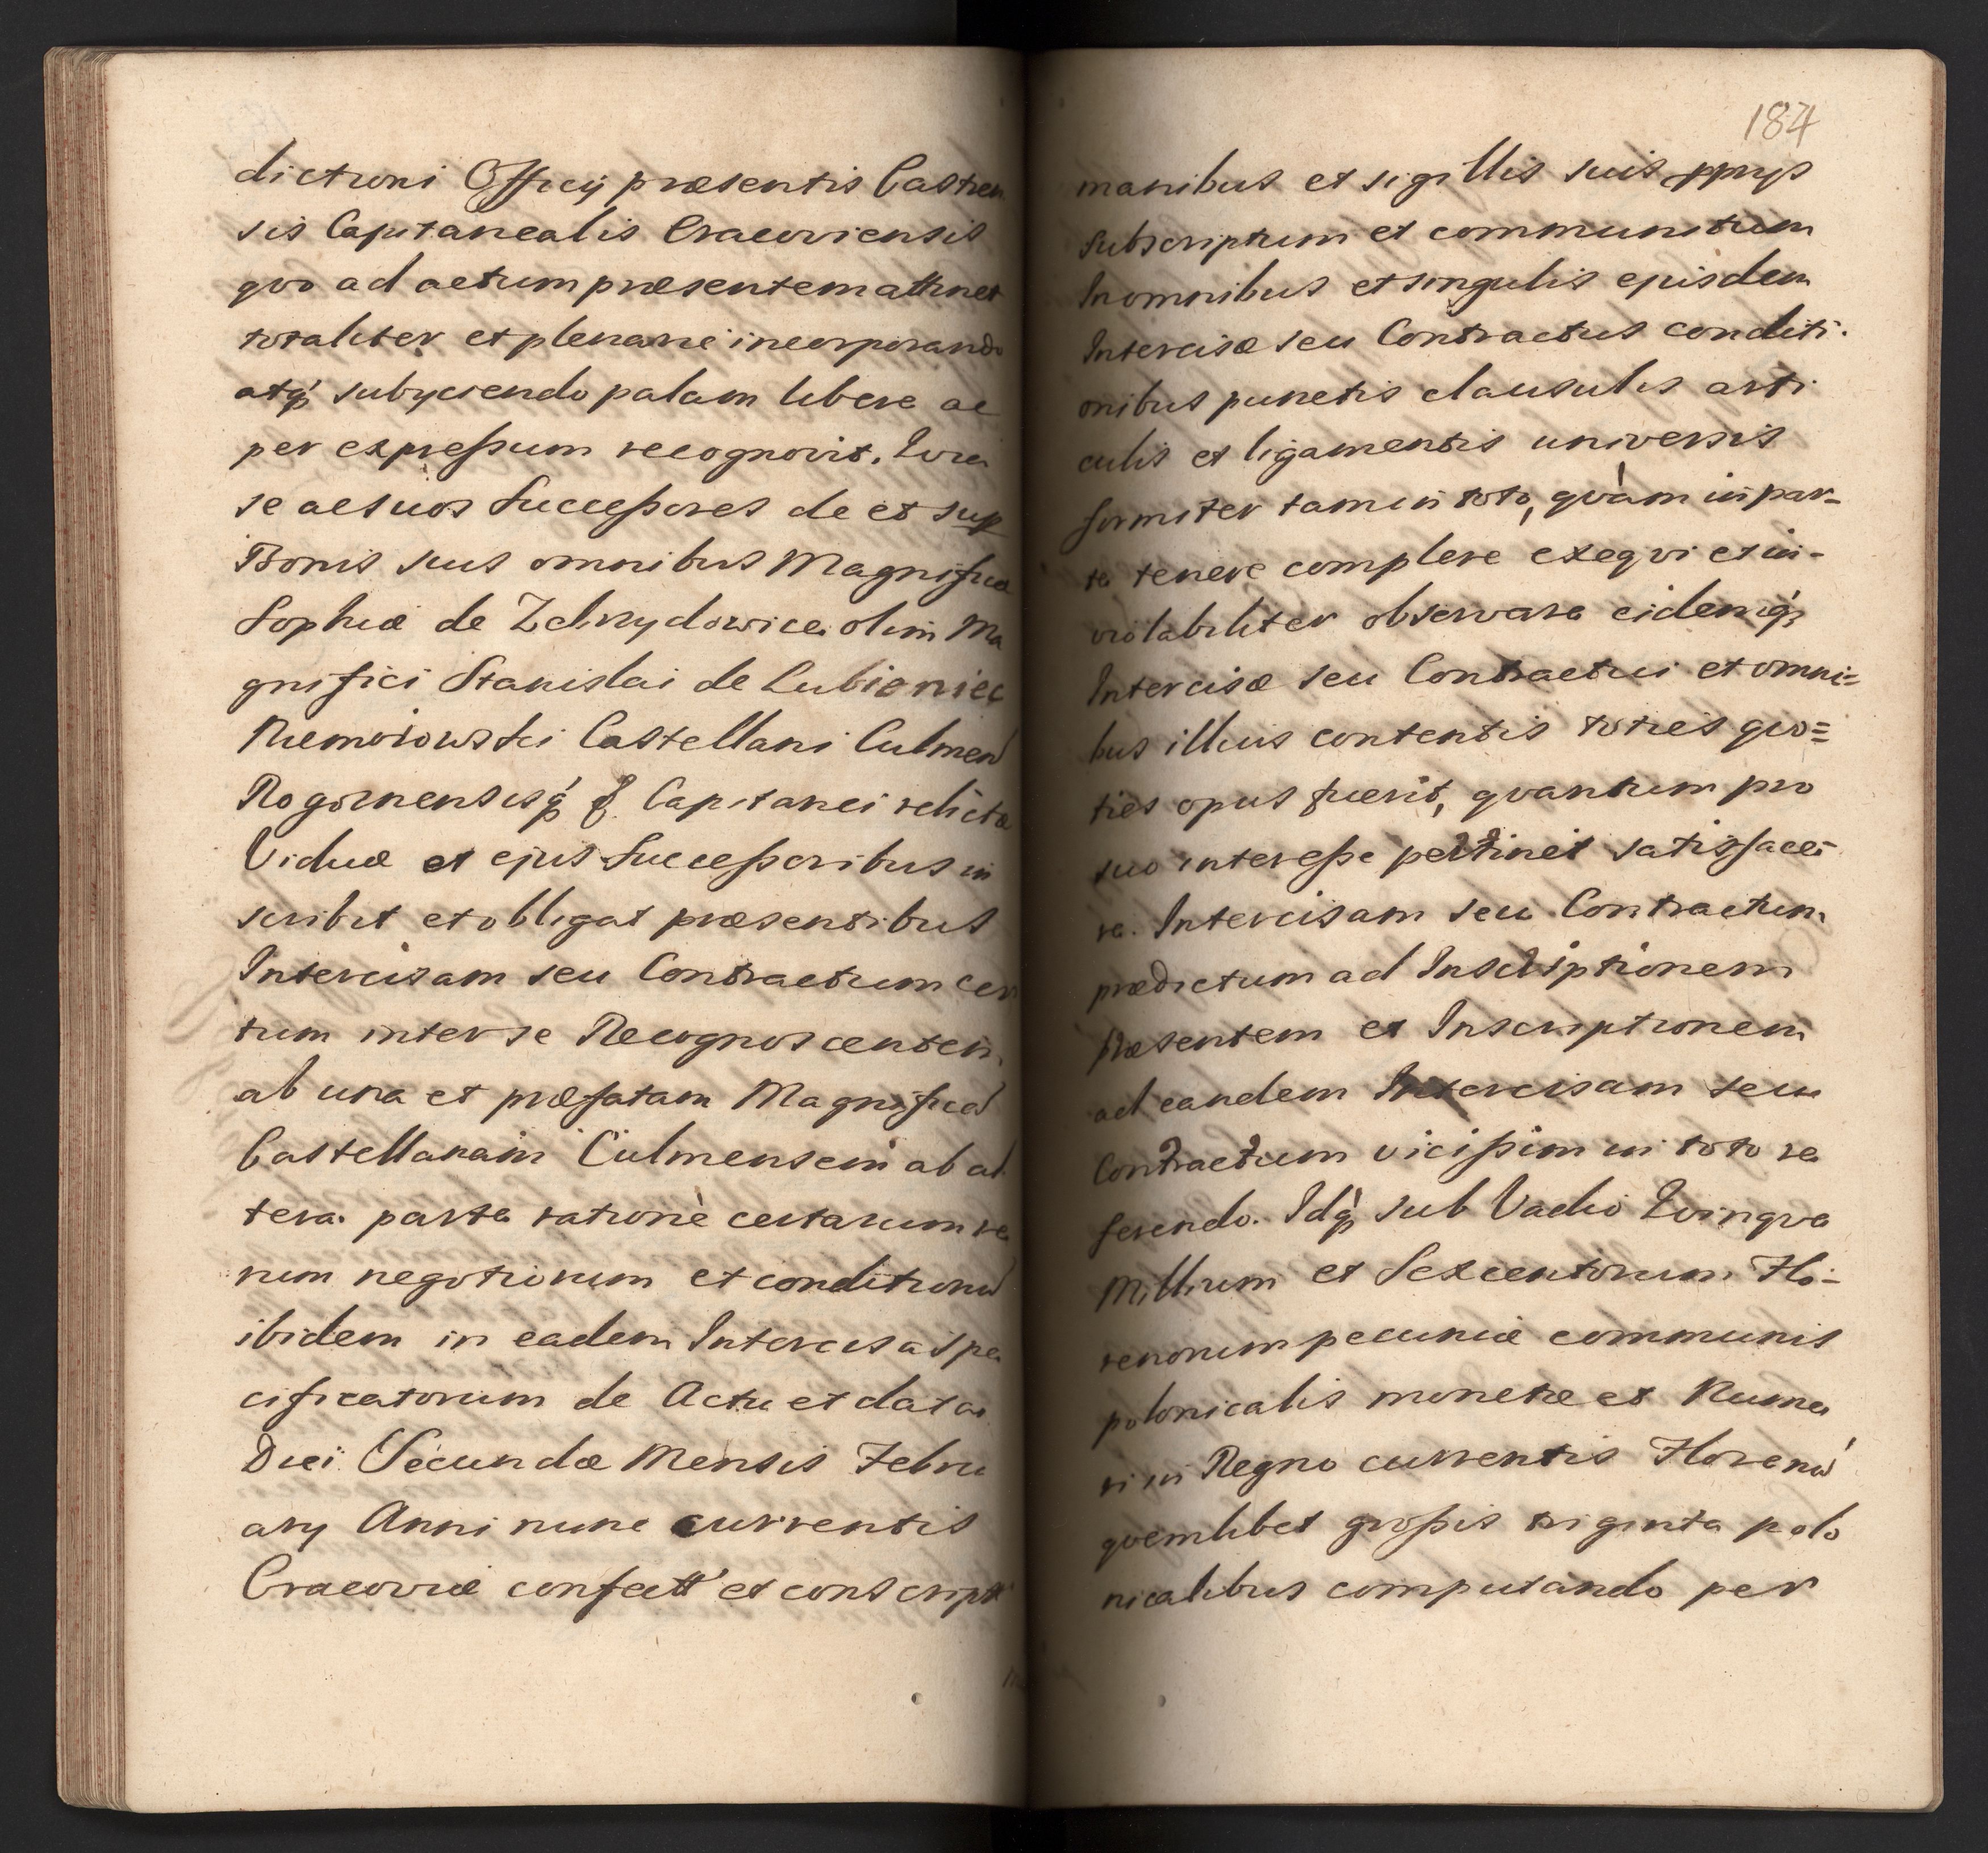 dictioni Officij præsentis Castren
sis Capitanealis Cracoviensis
qvo ad actum præsentem attinet
totaliter et plenarie incorporando
atq́ subyciendo palam libere ac
per expreſsum recognovit. Qvia
se ac suos Succeſsores de et sup
Bonis suis omnibus Magnificæ
Sophiæ de Zebrzydowice olim Ma
gnifici Stanislai de Lubieniec
Niemoiowski Castellani Culmen
Rogoznensisq́ Capitanei relictæ
Viduæ et ejus Succeſsoribus in
scribit et obligat præsentibus
Intercisam seu Contractum cer
tum inter se Recognoscentem
ab una et præfatam Magnificā
Castellanam Culmensem ab al
tera parte ratione certarum re
rum negotiorum et conditionū
ibidem in eadem Intercisa spe
cificatorum de Actu et data
Diei Secundæ Mensis Febru
ary Anni nunc currentis
Cracoviæ confectt et conscriptt
184
manibus et sigillis suis pprys
subscriptum et communitum
In omnibus et singulis ejusdem
Intercisæ seu Contractus conditi
onibus punctis clausulis arti
culis et ligamentis universis
formiter tam in toto, qvàm in par-
te tenere complere exeqvi et in-
violabiliter observare eidemq́
Intercisæ seu Contractui et omni=
bus illius contentis toties qvo=
ties opus fuerit, qvantum pro
suo intereſse pertinet satisface-
re. Intercisam seu Contractum
prædictum ad Inscriptionem
præsentem et Inscriptionem
ad eandem Intercisam seu
Contractum viciſsim in toto re
ferendo. Idq́ sub Vadio Qvinqve
Millium et Sexcentorum Flo-
renorum pecuniæ communis
polonicalis monetæ et Nume
ri in Regno currentis Florenū
qvemlibet groſsis triginta polo
nicalibus computando per